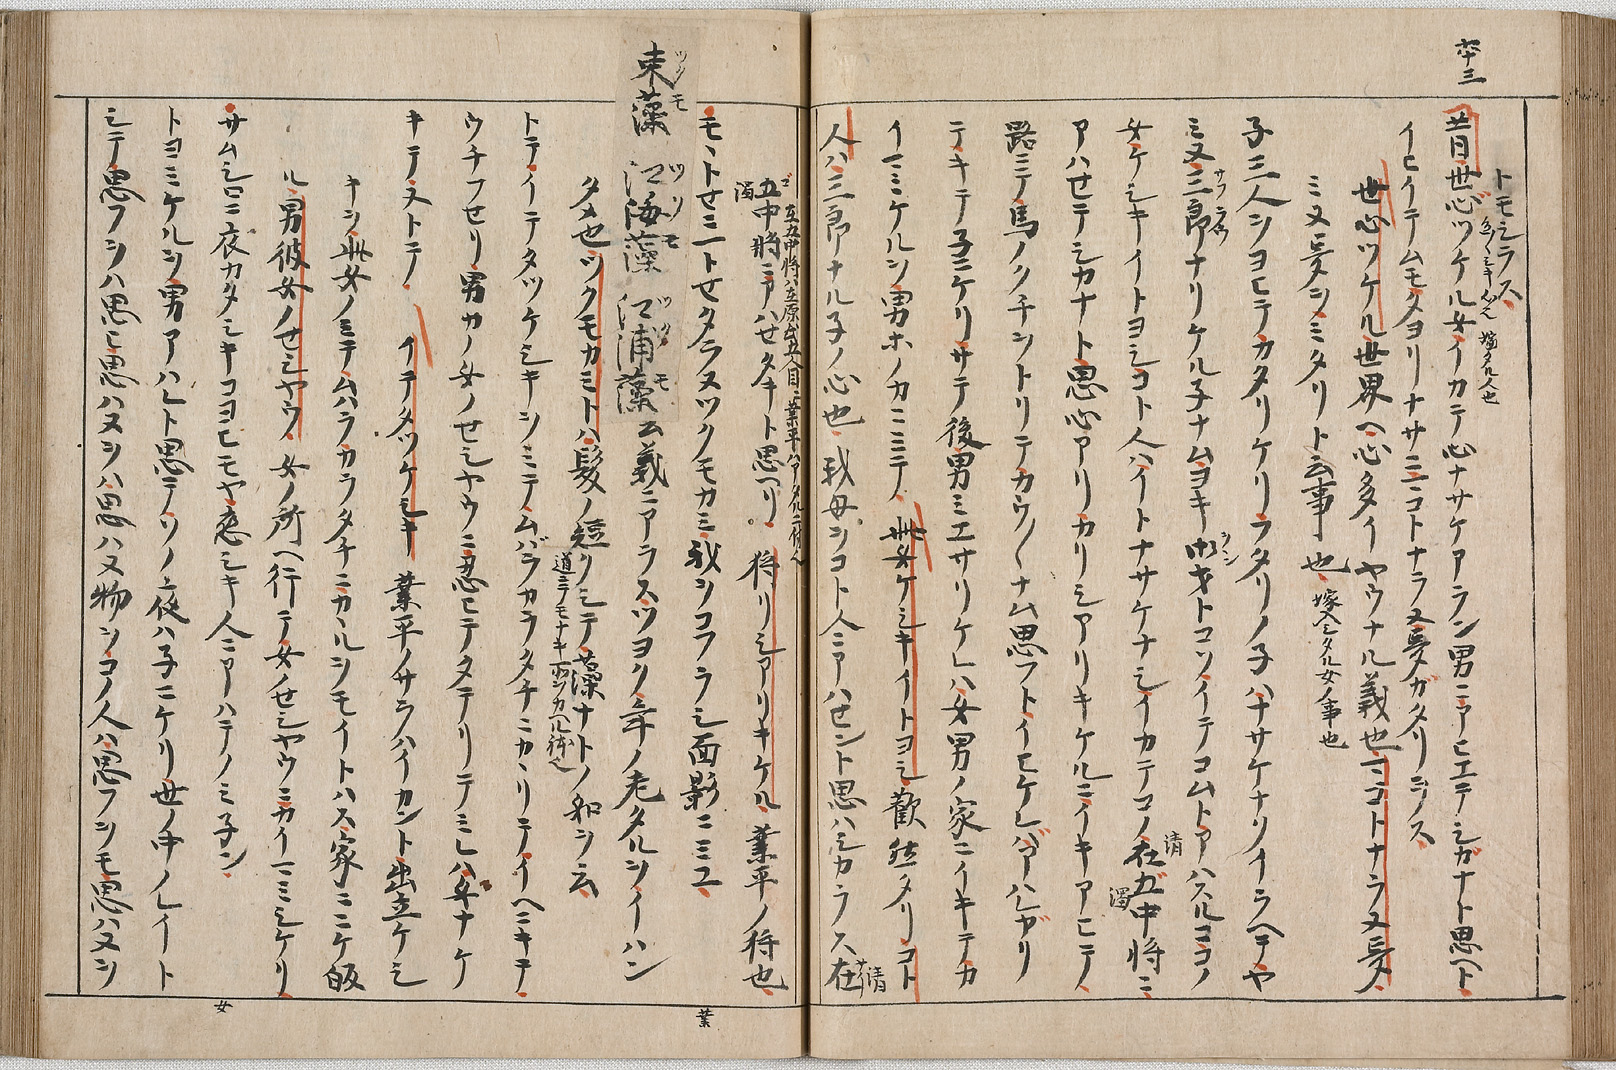 六十三
トモシラス
昔世心ツケル女イカテ心ナサケアラン男ニアヒエテシガナト思ヘト
媚タル人也
イヒイテムモタヨリナサニマコトナラヌ夢ガタリヲス
世心ツケル 世界ヘ心多イヤウナル義也マコトナラヌ夢
ミヌ夢ヲミタリト云事也
嫁ヘシタル女ノ事也
子三人ヲヨヒテカタリケリフタリノ子ハナサケナクイラヘテヤ
ミヌ三郎ナリケル子ナムヨキ御オトコソイテコムトアハスルニコノ
女ケシキイトヨシコト人ハイトナサケナシイカテコノ在五中将ニ
清
濁
アハセテシカナト思心アリカリシアリキケルニイキアヒテ
路ニテ馬ノクチヲトリテカウ〱ナム思フトイヒケレバアハレガリ
テキテネニケリサテ後男ミエサリケレハ女男ノ家ニイキテカ
イマミケルヲ男ホノカニミテ 此女ケシキイトヨシ 歓然タリコト
人ハ三郎ナル子ノ心也 我母ヲコト人ニアハセント思ハシカラス在
清
在五中将ハ在原氏五人目ニ業平ハアタルニ付也
五中将ニアハセタキト思ヘリ 狩リシアリキケル 業平ノ狩也
濁
モヽトセニ一トセタラヌツクモカミ我ヲコフラシ面影ニミユ
業
束藻 江海藻 江浦藻云義ニアラスツヨク年ノ老タルヲイハン
タメ也ツクモカミトハ髪ノ短クシテ藻ナトノ如ヲ云
道ニテモナキ所ヲカヘル体也
トテイテタツケシキヲミテムバラカラタチニカヽリテイヘニキテ
ウチフセリ男カノ女ノセシヤウニ忍ヒテタテリテミレハ女ナケ
キテヌトテ イテタツケシキ 業平ノサラハイカント出立ケシ
キヲ此女ノミテムハラカラタチニカヽルヲモイトハス家ニニケ皈
ル 男彼女ノセシヤウ 女ノ所ヘ行テ女ノセシヤウニカイマミシケリ
サムシロニ衣カタシキコヨヒモヤ恋シキ人ニアハテノミネン
女
トヨミケルヲ男アハレト思テソノ夜ハネニケリ世ノ中ノレイト
シテ思フヲハ思ヒ思ハヌヲハ思ハヌ物ヲコノ人ハ思フヲモ思ハヌヲ